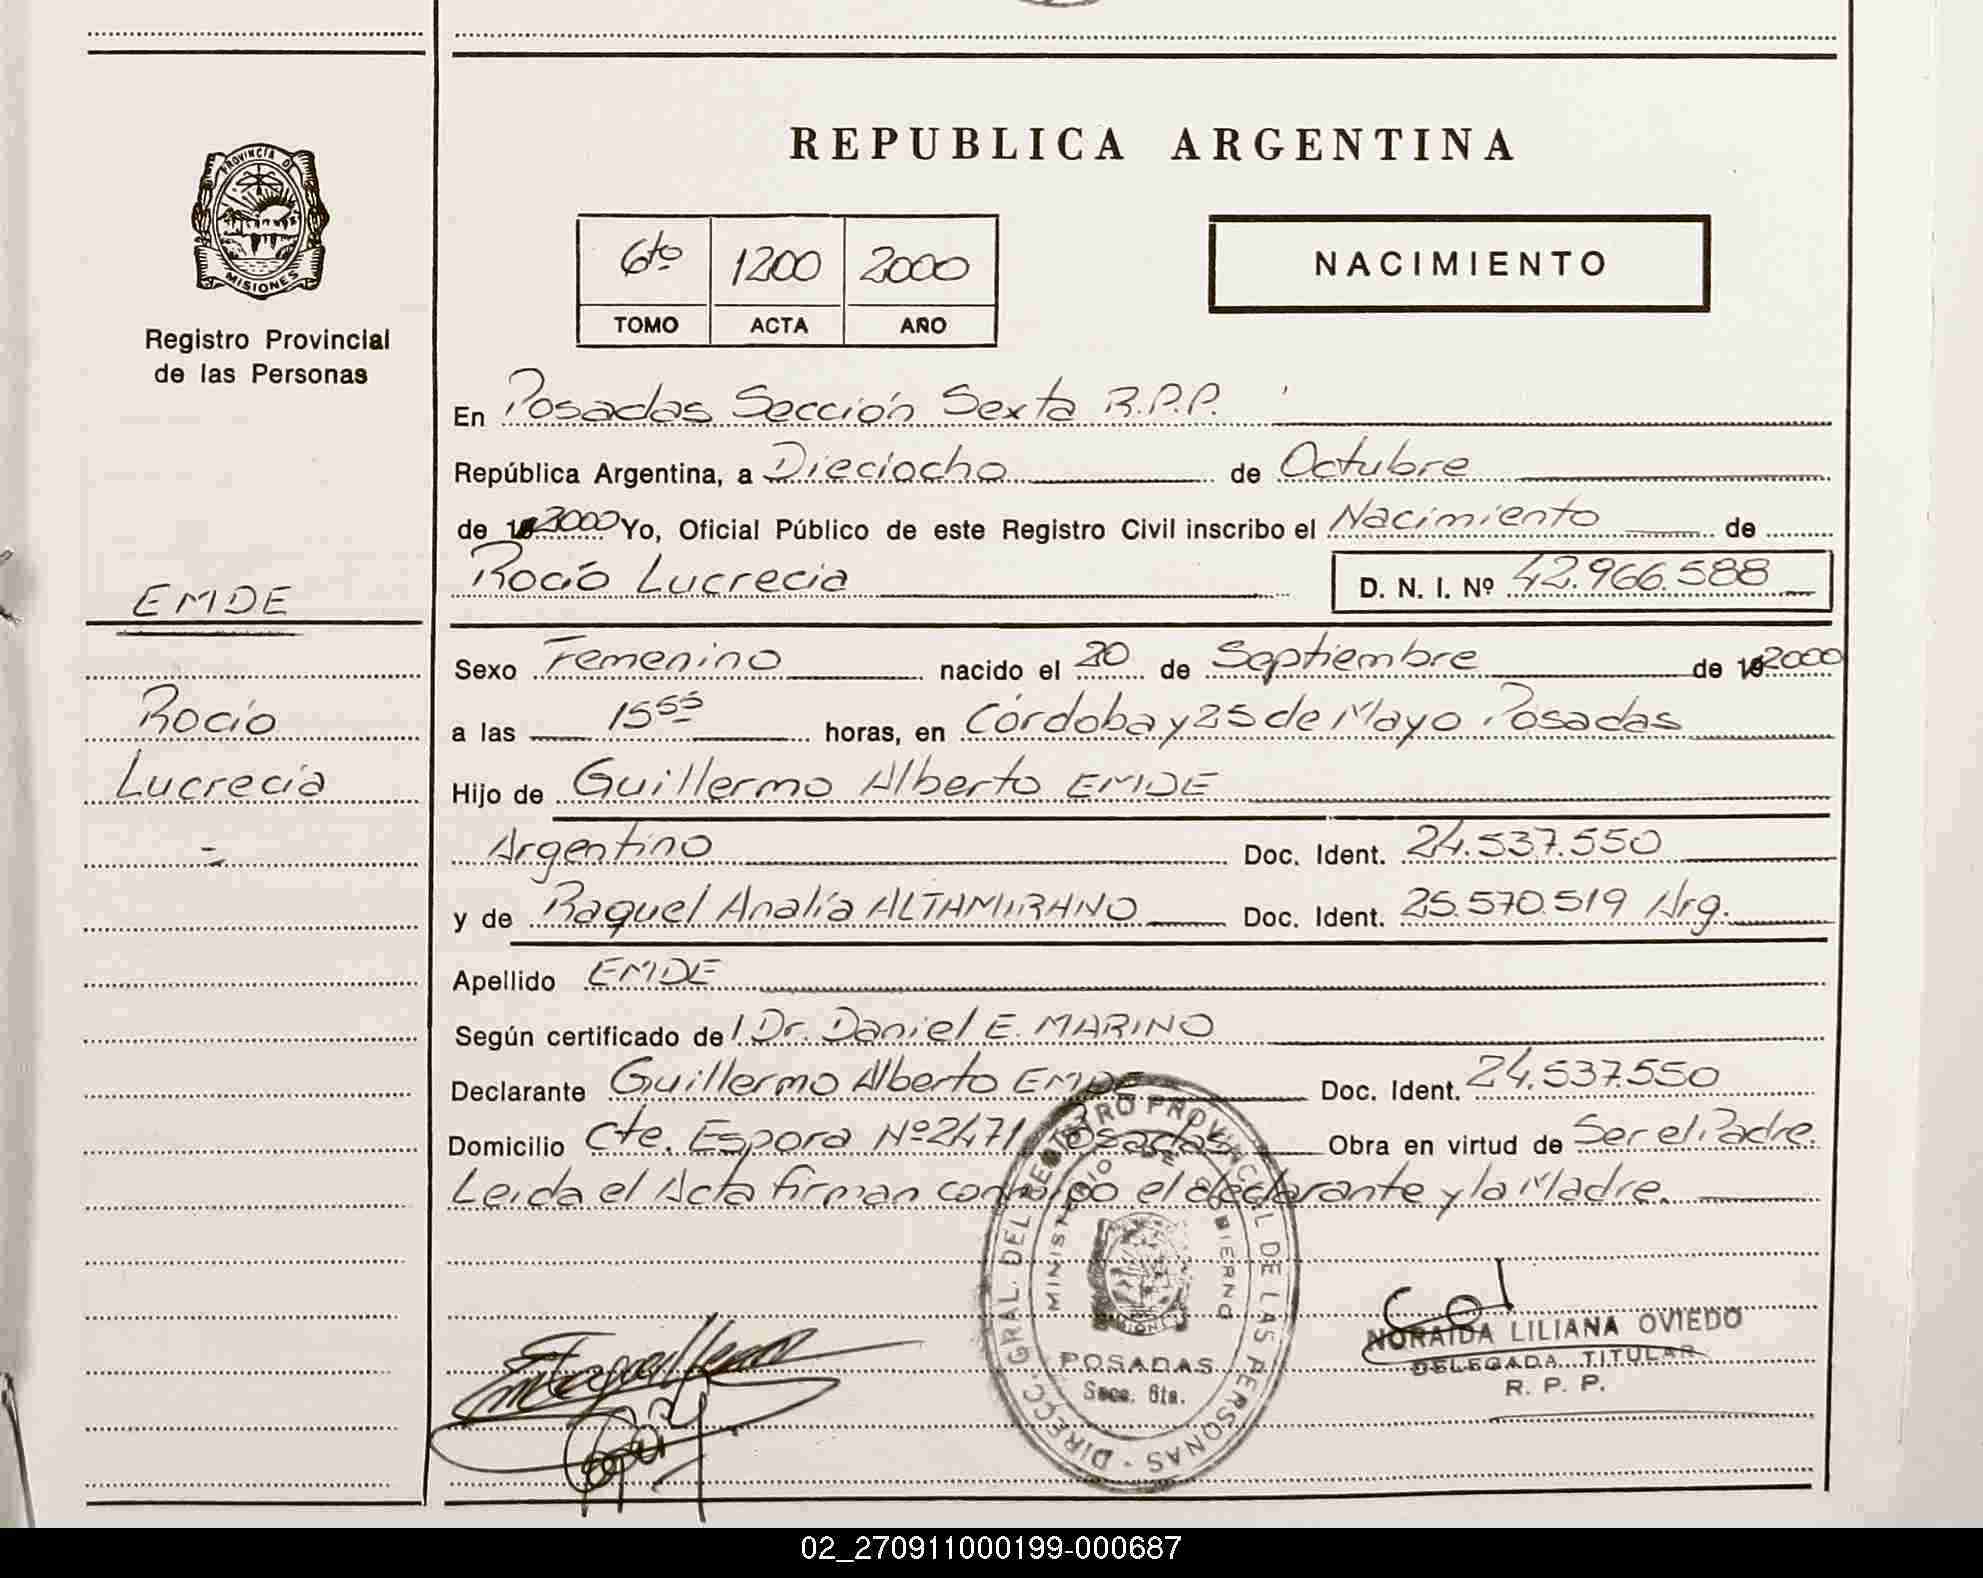 REPUBLICA ARGENTINA
PROVINCIA DE
MISIONES
Registro Provincial
de las Personas
6to 1200 2000
TOMO ACTA AÑO
NACIMIENTO
En Posadas Sección Sexta R.P.P.
República Argentina, a Dieciocho de Octubre
de 2000 Yo, Oficial Público de este Registro Civil inscribo el Nacimiento de
Rocío Lucrecia D. N. I. Nº 42.966.588
EMDE
Rocío
Lucrecia
Sexo Femenino nacido el 20 de Septiembre de 2000
a las 15 55 horas, en Córdoba y 25 de Mayo Posadas
Hijo de Guillermo Alberto EMDE
Argentino Doc. Ident. 24.537.550
y de Raquel Analía ALTAMIRANO Doc. Ident. 25.570.519 Arg.
Apellido EMDE
Según certificado de l Dr. Daniel E. MARINO
Declarante Guillermo Alberto EMDE Doc. Ident. 24.537.550
Domicilio Cte. Espora Nº 2471 Posadas Obra en virtud de Ser el Padre.
Leida el Acta firman conmigo el declarante y la Madre.
DIRECC. GRAL. DEL REGISTRO PROVINCIAL DE LAS PERSONAS
MINISTERIO DE GOBIERNO
MISIONES
POSADAS
Secc. 6ta.
NORAIDA LILIANA OVIEDO
DELEGADA TITULAR
R. P. P.
02_270911000199-000687